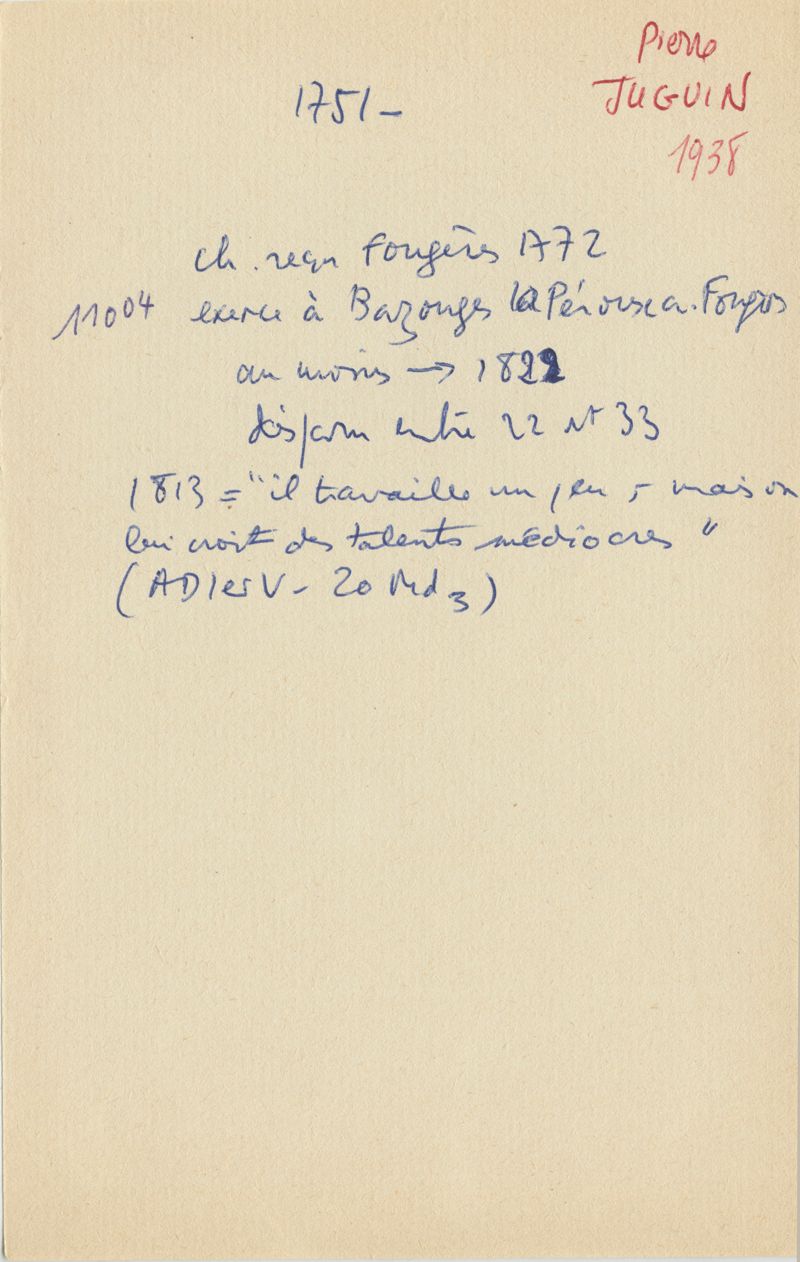 Pierre
JUGUIN
1938
1751 -
ch. reçu Fougères 1772
11004 exerce à Bazouges la Pérouse a. Fougères
au moins → 1822
disparu entre 22 et 33
1813 = "il travaille un peu, - mais on
lui croit des talents médiocres"
(ADIetV - 20 Md 3)